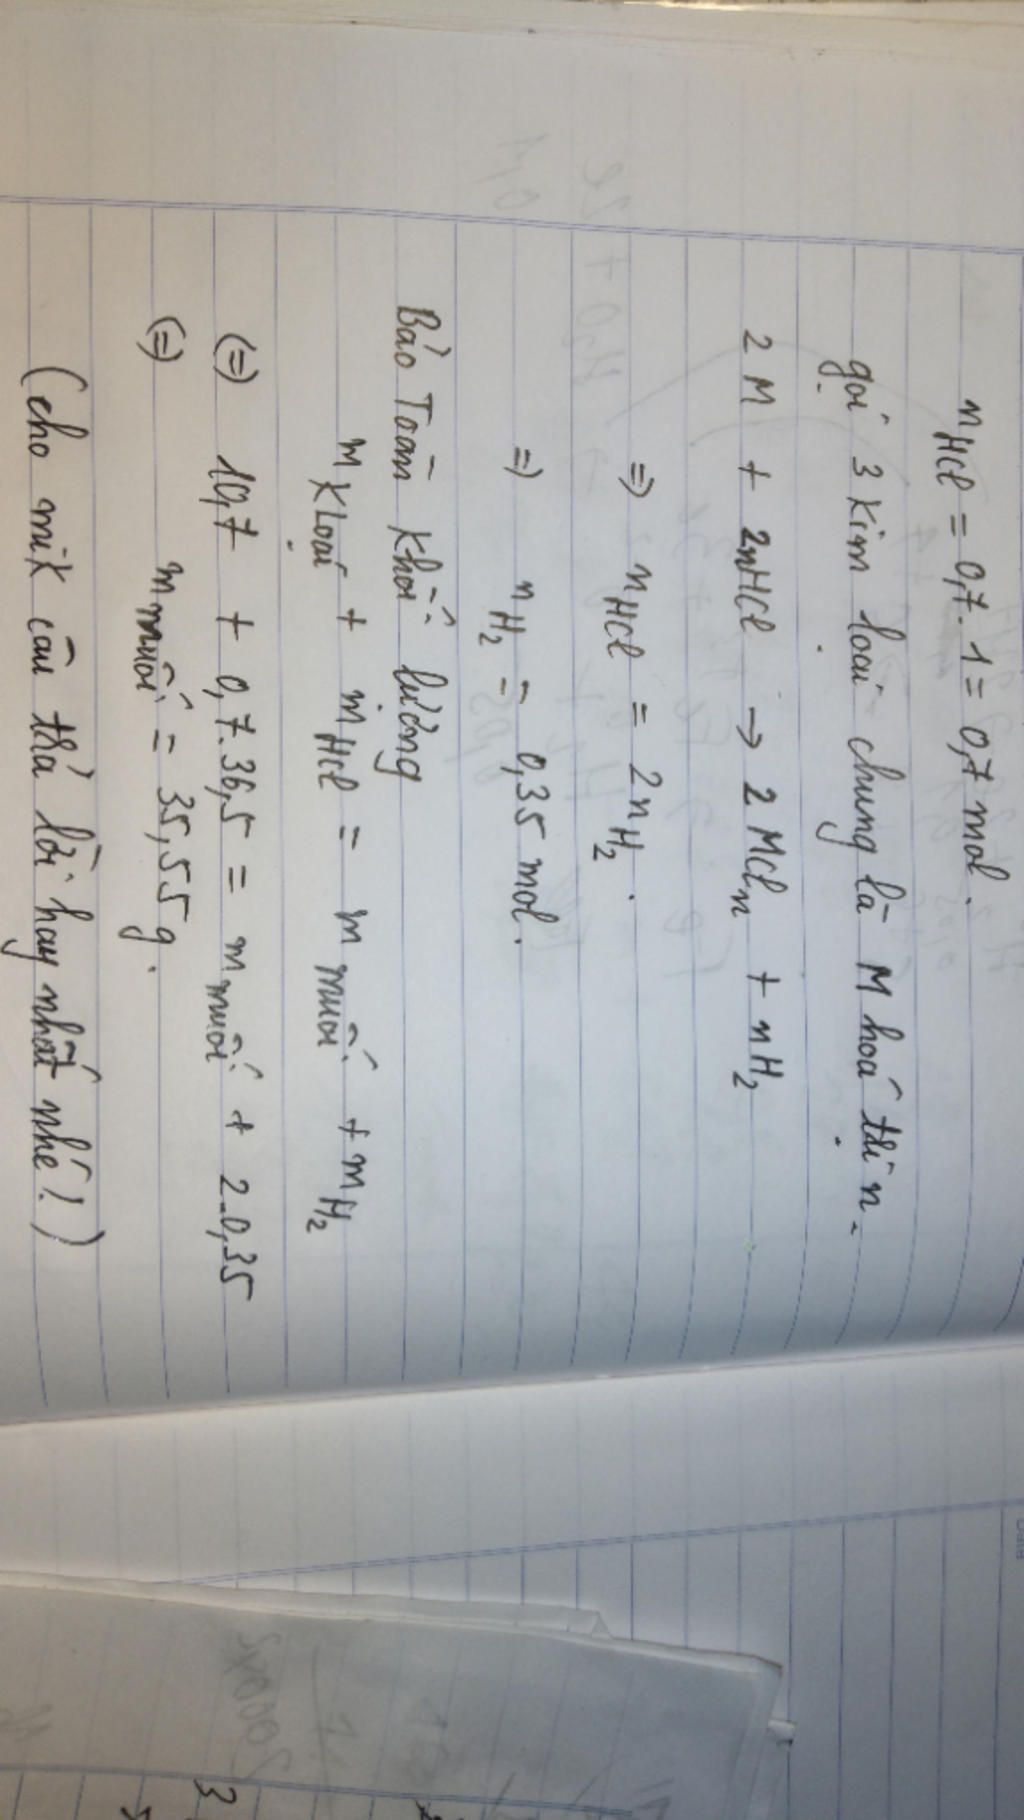 nHCl = 0,7.1 = 0,7 mol.
gọi 3 kim loại chung là M hoá trị n.
2 M + 2nHCl → 2 MCln + nH2
=> nHCl = 2nH2.
=> nH2 = 0,35 mol.
Bảo Toàn khối lượng
mkloại + mHCl = mmuối + mH2
(=) 10,7 + 0,7.36,5 = mmuối + 2.0,35
(=) mmuối = 35,55 g.
(cho mik câu trả lời hay nhất nhé!)